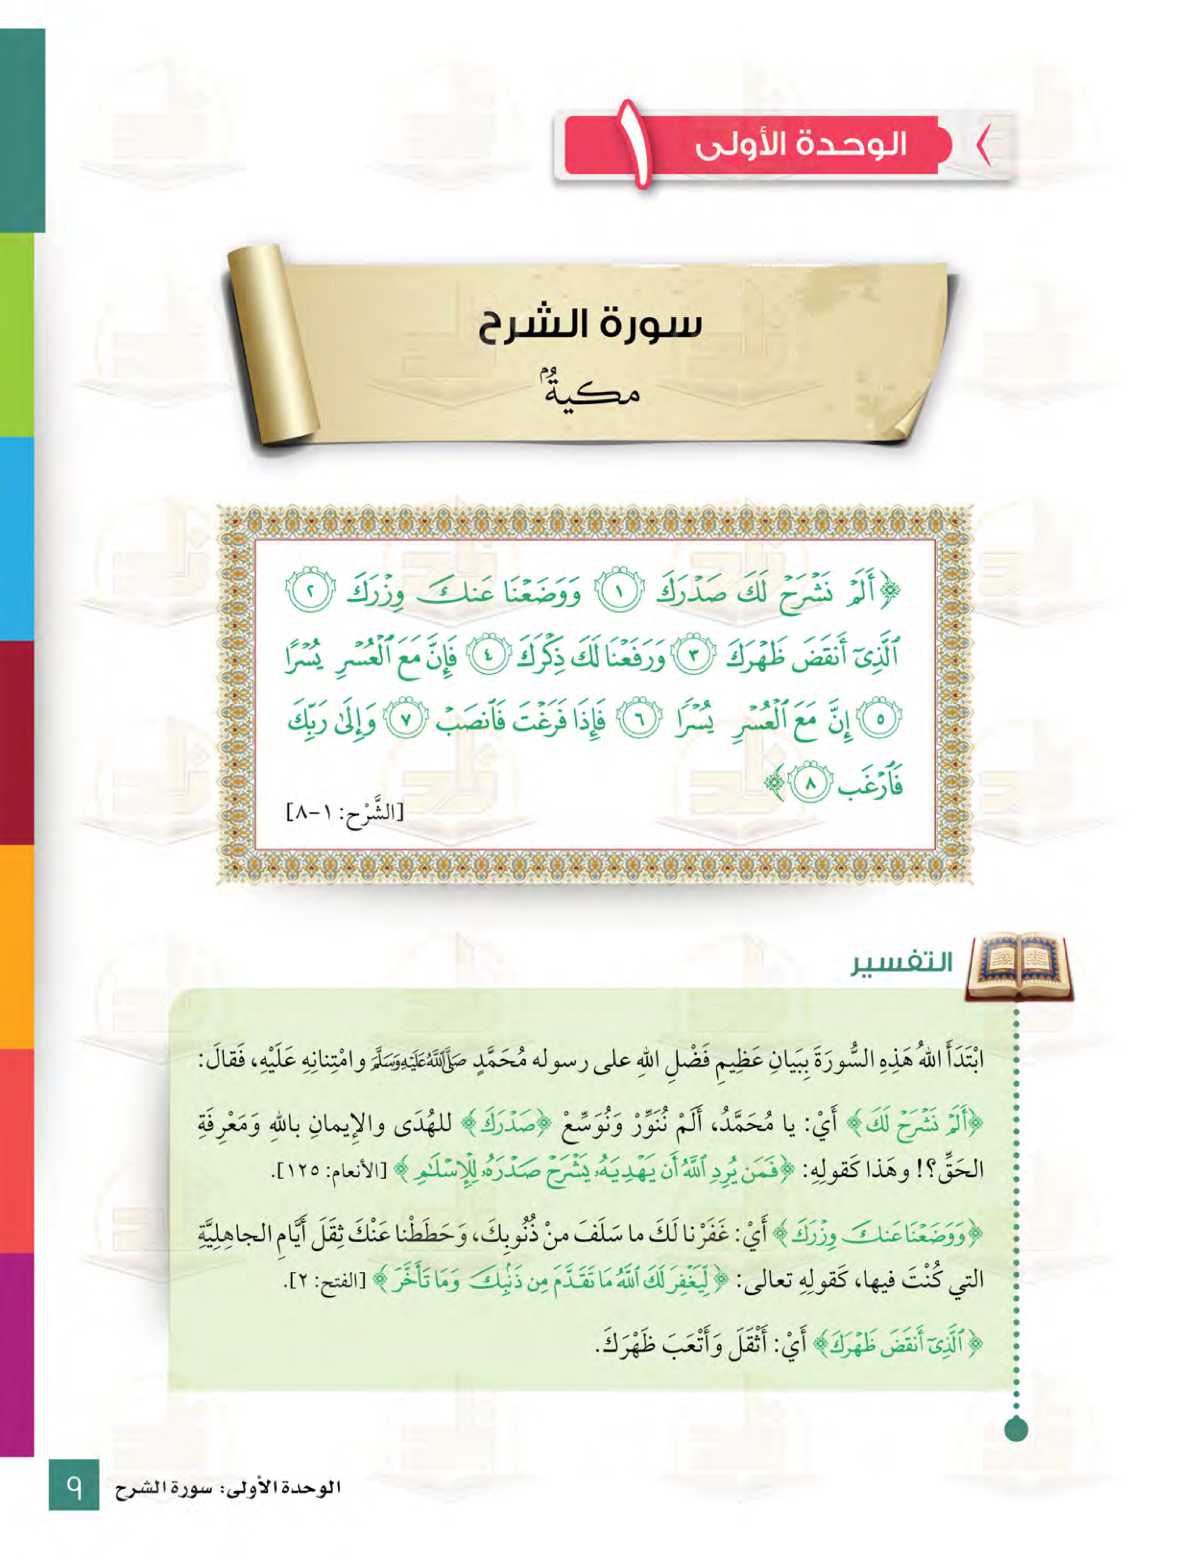 الوحدة الأولى ١
سورة الشرح
مكيةٌ
﴿أَلَمۡ نَشۡرَحۡ لَكَ صَدۡرَكَ ١ وَوَضَعۡنَا عَنكَ وِزۡرَكَ ٢
ٱلَّذِيٓ أَنقَضَ ظَهۡرَكَ ٣ وَرَفَعۡنَا لَكَ ذِكۡرَكَ ٤ فَإِنَّ مَعَ ٱلۡعُسۡرِ يُسۡرًا
٥ إِنَّ مَعَ ٱلۡعُسۡرِ يُسۡرٗا ٦ فَإِذَا فَرَغۡتَ فَٱنصَبۡ ٧ وَإِلَىٰ رَبِّكَ
فَٱرۡغَب ٨﴾
[الشَّرْح: ١-٨]
التفسير
ابْتَدَأَ اللهُ هَذِهِ السُّورَةَ بِبَيانِ عَظِيمِ فَضْلِ اللهِ على رسوله مُحَمَّدٍ صَلَّى اللَّهُ عَلَيْهِ وَسَلَّمَ وامْتِنانِهِ عَلَيْهِ، فَقالَ:
﴿أَلَمۡ نَشۡرَحۡ لَكَ﴾ أَيْ: يا مُحَمَّدُ، أَلَمْ نُنَوِّرْ وَنُوَسِّعْ ﴿صَدۡرَكَ﴾ للهُدَى والإيمانِ باللهِ وَمَعْرِفَةِ
الحَقِّ؟! وهَذا كَقولِهِ: ﴿فَمَن يُرِدِ ٱللَّهُ أَن يَهۡدِيَهُۥ يَشۡرَحۡ صَدۡرَهُۥ لِلۡإِسۡلَٰمِ﴾ [الأنعام: ١٢٥].
﴿وَوَضَعۡنَا عَنكَ وِزۡرَكَ﴾ أَيْ: غَفَرْنا لَكَ ما سَلَفَ منْ ذُنُوبِكَ، وَحَطَطْنا عَنْكَ ثِقَلَ أَيَّامِ الجاهِلِيَّةِ
التي كُنْتَ فيها، كَقولِهِ تعالى: ﴿لِّيَغۡفِرَ لَكَ ٱللَّهُ مَا تَقَدَّمَ مِن ذَنۢبِكَ وَمَا تَأَخَّرَ﴾ [الفتح: ٢].
﴿ٱلَّذِيٓ أَنقَضَ ظَهۡرَكَ﴾ أَيْ: أَثْقَلَ وَأَتْعَبَ ظَهْرَكَ.
الوحدة الأولى: سورة الشرح ٩